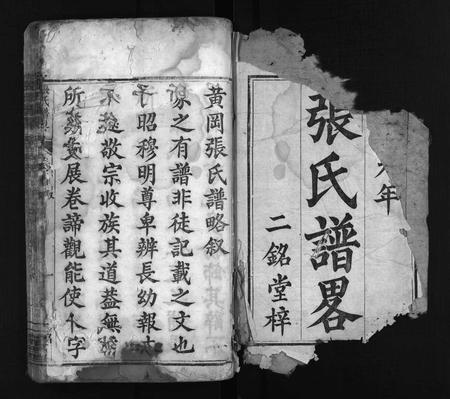 年
張氏譜畧
二銘堂梓
黃岡張氏譜略叙
家之有譜非徒記載之文也
昭穆明尊卑辨長幼報本
敬宗收族其道葢無
所展卷諦觀能使人字